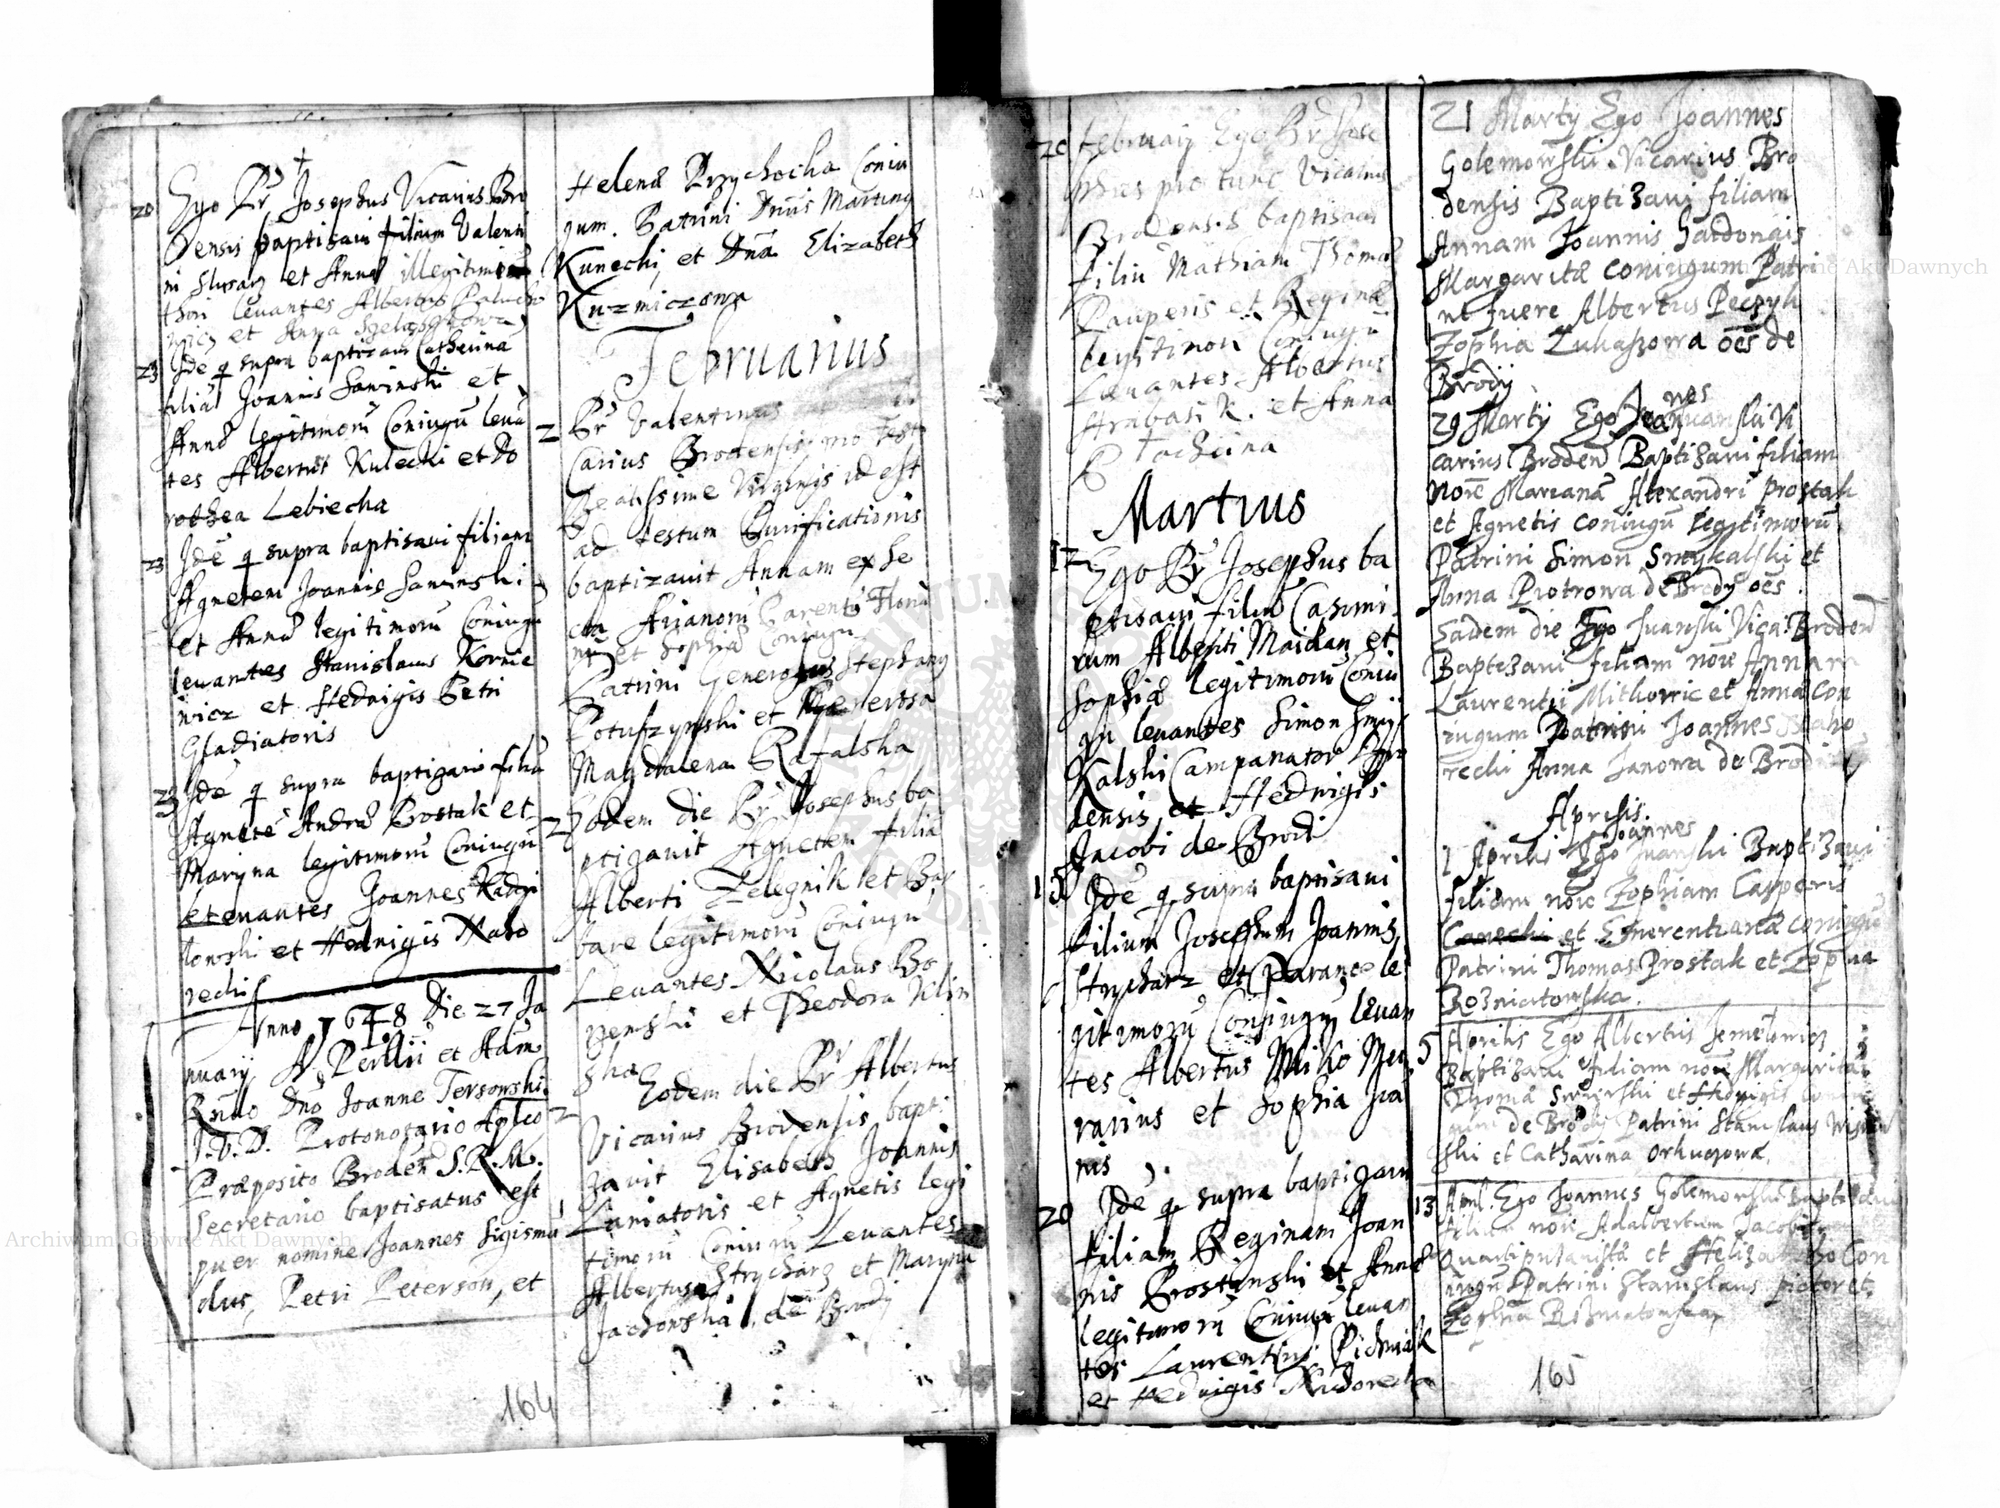 20 Ego Br Josephus Vicarius Bro
densis baptisaui filium Valenti
ni Slusarz et Annæ illegitimoru
thori leuantes Albertus
et Anna
23 Idē q supra baptizaui Catherina
filiā Joannis Sawinski et
Annæ legitimoru Coniugū leuā
tes Albertus Kulecki et Do
rothea Lebiecka
23 Idē q supra baptisaui filiam
Agnetem Joannis Sawinski
et Annæ legitimoru Coniugū
leuantes Stanislaus Kornie
wicz et Hedvigis Petri
Gladiatoris
23 Idē q supra baptizaui filiā
Agnetē Andreæ Prostak et
Maryna legitimoru Coniugū
leuantes Joannes Radzi
kowski et Hedvigis Nabo
recki
Anno 1648 Die 27 Ja
nuarij A Perllii et Adm
Rndo Dno Joanne Tersowski
J.V.D. Protonotario Aplico
Præposito Broden S.R.M.
Secretario baptisatus est
puer nomine Joannes Sigismu
dus, Petri Peterson, et
164
Helenæ Przychocka Coniu
gum. Patrini Dnus Martinus
Kunecki, et Dna Elizabeth
Kuzmiczowa
Februarius
2 Br Valentinus
carius Brodensis in fest
Beatissime Virginis id est
ad festum Purificationis
baptizauit Annam ex Se
cta Arianoru Parentū Flori
ni et Sophiæ Coniugū
Patrini Generosus Stephanus
Potufzynski et Generosa
Magdalena Rafalska
2 Eodem die Br Josephus ba
ptizauit Agnetem filiā
Alberti Zelegnik et Bar
bare legitimoru Coniugū
Leuantes Nicolaus Bo
et Theodora Klin
ska
2 Eodem die Br Albertus
Vicarius Brodensis bapti
zauit Elisabeth Joannis
Laniatoris et Agnetis legi
timoru Coniugū Leuantes
Albertus Strycharz et Maryna
Jachowska, de Brody
20 februarij Ego Br Jose
phus pro tunc Vicarius
Brodensis baptisaui
filiū Mathiam Thomæ
Pauperis et Reginæ
legitimoru Coniugū
Leuantes Albertus
Arabasik. et Anna
Martius
12 Ego Br Josephus ba
ptisaui filiū Casimi
rum Alberti Maidan et
Sophiæ legitimoru Coniu
gū leuantes Simon Smy
kalski Campanator Bro
densis, et Hedvigis
Jacobi de Brodi
15 Idē q supra baptisaui
filium Josephum Joannis
Strycharz et Paraxe le
gitimoru Coniugū leuan
tes Albertus Milko Mer
carius et Sophia Joa
nis
20 Idē q supra baptizaui
filiam Reginam Joan
nis Prostinski et Annæ
legitimoru Coniugū leuan
tes Laurentius Pichniak
et Hedvigis
21 Marty Ego Joannes
Golemowski Vicarius Bro
densis Baptizaui filiam
Annam Joannis Gardonais
Margaritæ coniugum Patri
ni fuere Albertus Peczyk
Zophia Lukaszowa oēs de
Brody
29 Marty Ego Joannes Juanski Vi
carius Broden Baptizaui filiam
noīe Marianā Alexandri Prostak
et Agnetis coniugū legitimorū
Patrini Simon Smykalski et
Anna Piotrowa de Brody oēs.
Eadem die Ego Juanski Vica: Broden
Baptizaui filiam noīe Annam
Laurentii Mitkowic et Anna Con
iugum Patrini Joannes Nabo
recki Anna Janowa de Brodi
Aprilis.
1 Aprilis Ego Joannes Juanski Baptizaui
filiam noīe Zophiam Casperis
Canecki et Emerentianæ coniugū
Patrini Thomas Prostak et Zophia
Rozniatowska.
5 Aprilis Ego Albertus
Baptizaui filiam noīe Margaritā
Thomæ et Hedvigis coniu
de Brody Patrini Stanislaus
ski et Catharina
13 April. Ego Joannes Golemowski Baptizaui
noīe Adalbertum Jacobi
et Con
iugū Patrini Stanislaus pictor et
Zophia Rozniatowska
165
Archiwum Główne Akt Dawnych